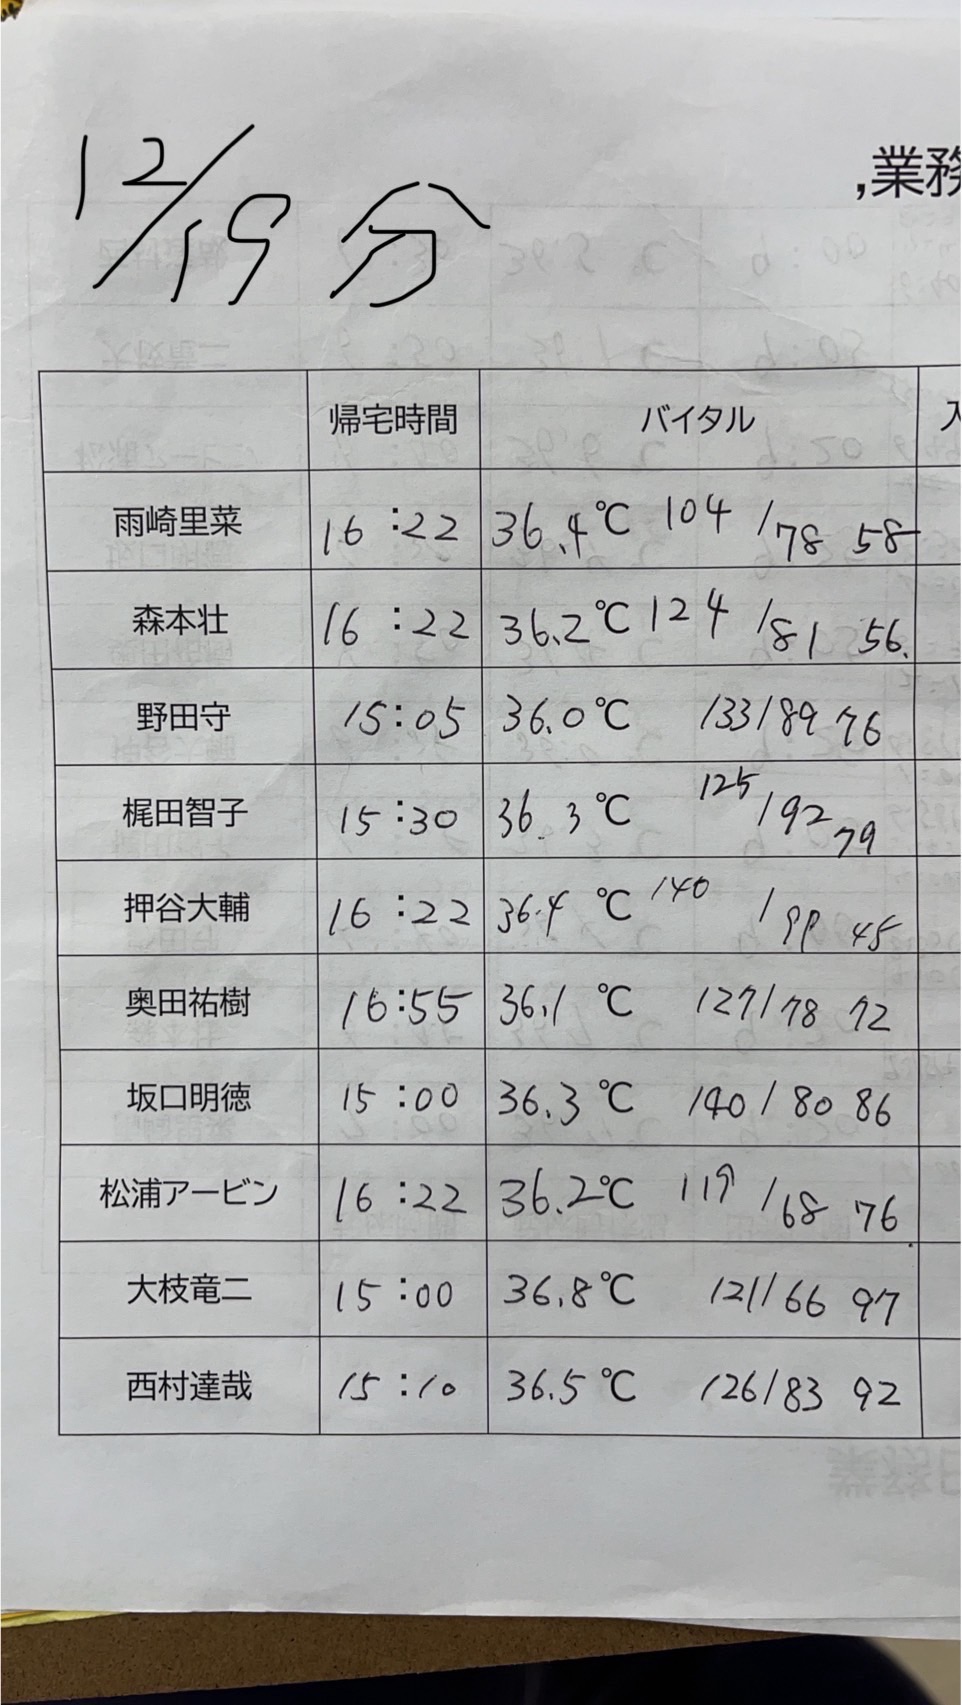 12/19分
,業務
帰宅時間 バイタル 入
雨崎里菜 16:22 36.4℃ 104/78 58
森本壮 16:22 36.2℃ 124/81 56.
野田守 15:05 36.0℃ 133/89 76
梶田智子 15:30 36.3℃ 125/92 79
押谷大輔 16:22 36.4℃ 140/99 45
奥田祐樹 16:55 36.1℃ 127/78 72
坂口明徳 15:00 36.3℃ 140/80 86
松浦アービン 16:22 36.2℃ 119/68 76
大枝竜二 15:00 36.8℃ 121/66 97
西村達哉 15:10 36.5℃ 126/83 92